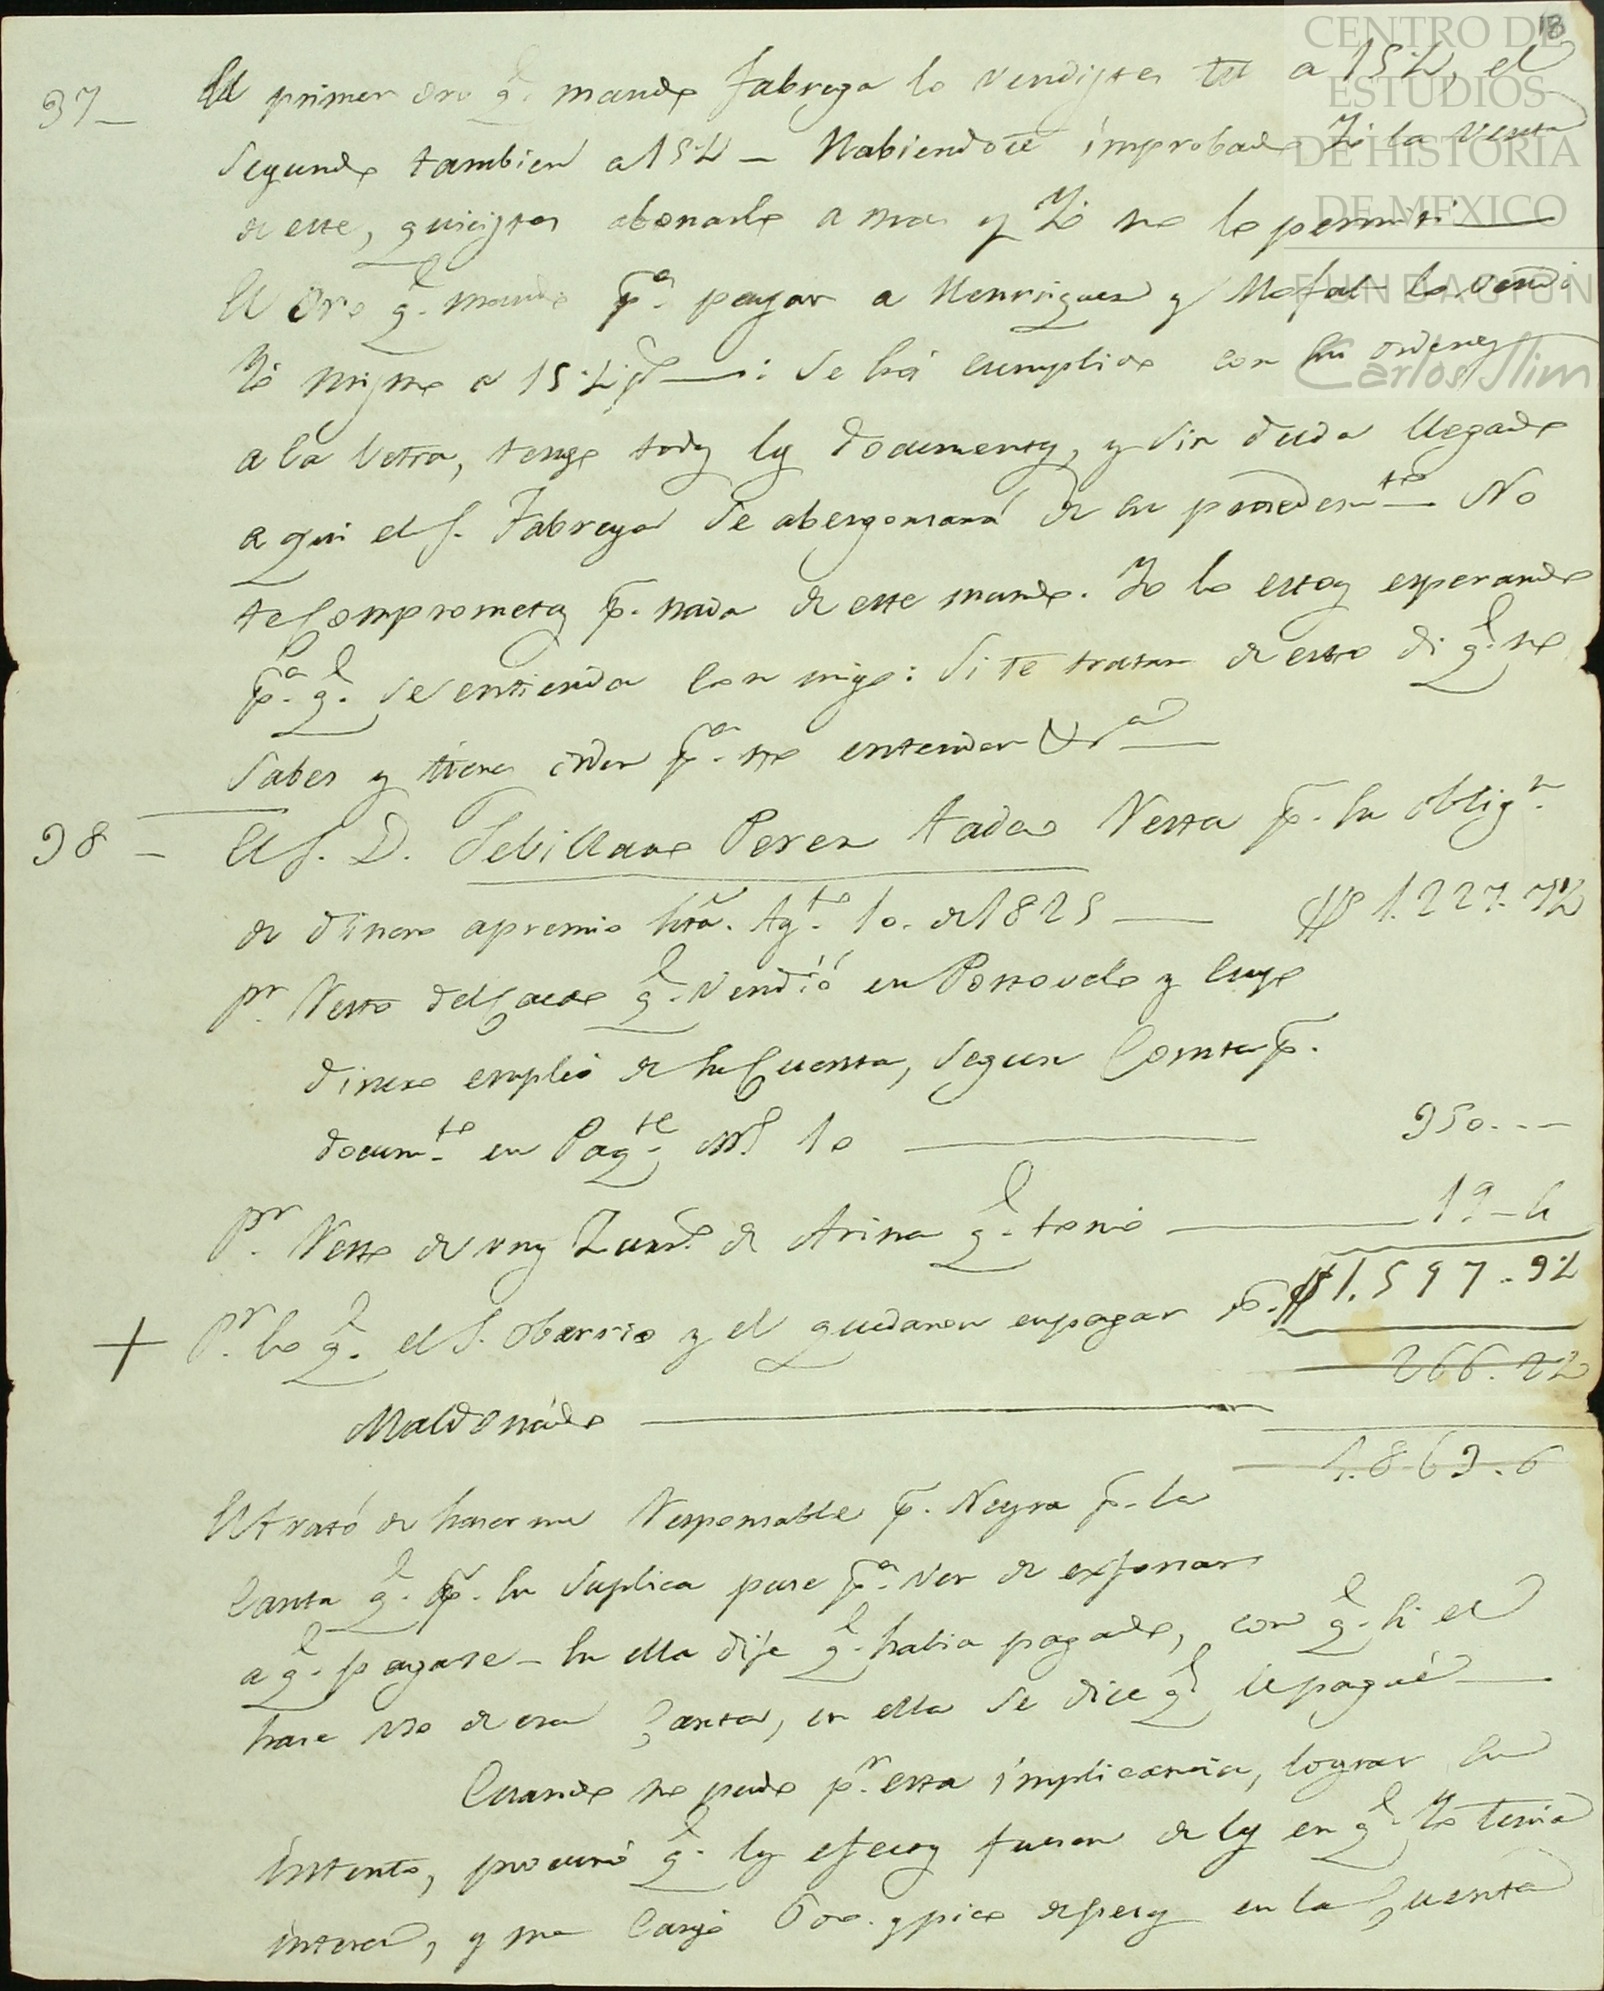 18
CENTRO DE
ESTUDIOS
DE HISTORIA
DE MEXICO
FUNDACION
Carlos Slim
37_ El primer oro q.^e mando Fabrega lo vendistes tu a 15½, el
segundo tambien a 15½ _ Habiendote improbado Yó la Venta
de este, quisistes abonarlo a mas y Yó no lo permiti
El Oro q.^e mando p.^a pagar a Henriquez y lo vendi
Yó mismo a 15½ p.^s : Se há cumplido con su ordenes
a la letra, tengo todos los documentos, y sin duda llegado
aqui el S. Fabrega se abergonsará de su prosedem.^to No
te comprometas p. nada de este mundo. Yo lo estoy esperando
p.^a q.^e se entienda con migo: Si te tratan de esto di q.^e no
sabes y tienes orden p.^a no entender &.^a
98 _ El S. D. Sebillano Perez tadeo Resta p. su oblig.^n
de dinero a premio hta. Ag.^to 10. de 1825 $ 1.227.
p.^r Resto del Cacao q.^e Vendió en Portovelo y cuyo
dinero empleó de su Cuenta, segun Consta p.
docum.^to en Paq.^te N.º 10 350. --
P.^r Resto de unos de Arina q.^e tomó 19_6
$ 1.597. 3½
+ P.^r lo q.^e el S. Obarrio y el quedaron en pagar p.
Maldonado 266. 2½
1.863.6
El trató de haserme Responsable p. Negra p. la
Carta q.^e p. su suplica puse p.^a ver de exforsar
a q.^e pagase _ En ella dije q.^e habia pagado, con q.^e si el
hase uso de esa Carta, en ella se dice q.^e le pagué
Cuando no pudo p.^r esta implicancia, lograr su
intento, procuró q.^e los efectos fuesen de los en q.^e Yo tenia
interes, y me Cargó 600. y pico de pesos en la Cuenta